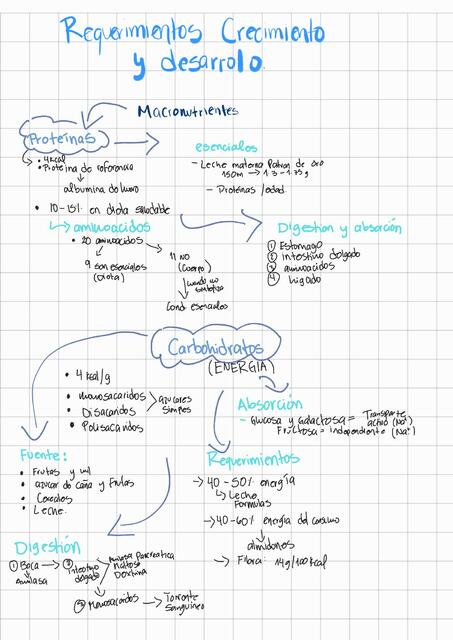 Requerimientos Crecimiento
y desarrollo.
Macronutrientes
Proteínas
• 4 kcal
• Proteína de referencia
albumina de huevo
• 10-15% en dieta saludable
aminoacidos
• 20 aminoacidos
9 son esenciales
(Dieta)
11 NO
(Cuerpo)
cuando no
Cond esenciales
esenciales
- Leche materna Patron de oro
150m → 1.3 - 1.75g
- Proteinas /edad.
Digestion y absorción
① Estomago
② intestino delgado
③ aminoacidos
④ Higado
Carbohidratos
(ENERGÍA)
• 4 kcal/g
• Monosacaridos
• Disacaridos
• Polisacaridos
Azucares
Simples
Absorción
- Glucosa y Galactosa = Transporte
activo (Na⁺)
Fructosa = independiente (Na⁺)
Fuente:
• Frutas y miel
• azucar de caña y frutas
• Cereales
• Leche.
Requerimientos
→ 40 - 50% energía
Leche
Formulas
→ 40-60% energía del consumo
almidones
→ Fibra: 14g/1000kcal
Digestión
① Boca → ② intestino
delgado
amilasa
amilasa Pancreatica
Maltosa
Dextrina
③ Monosacaridos → Torrente
Sanguineo